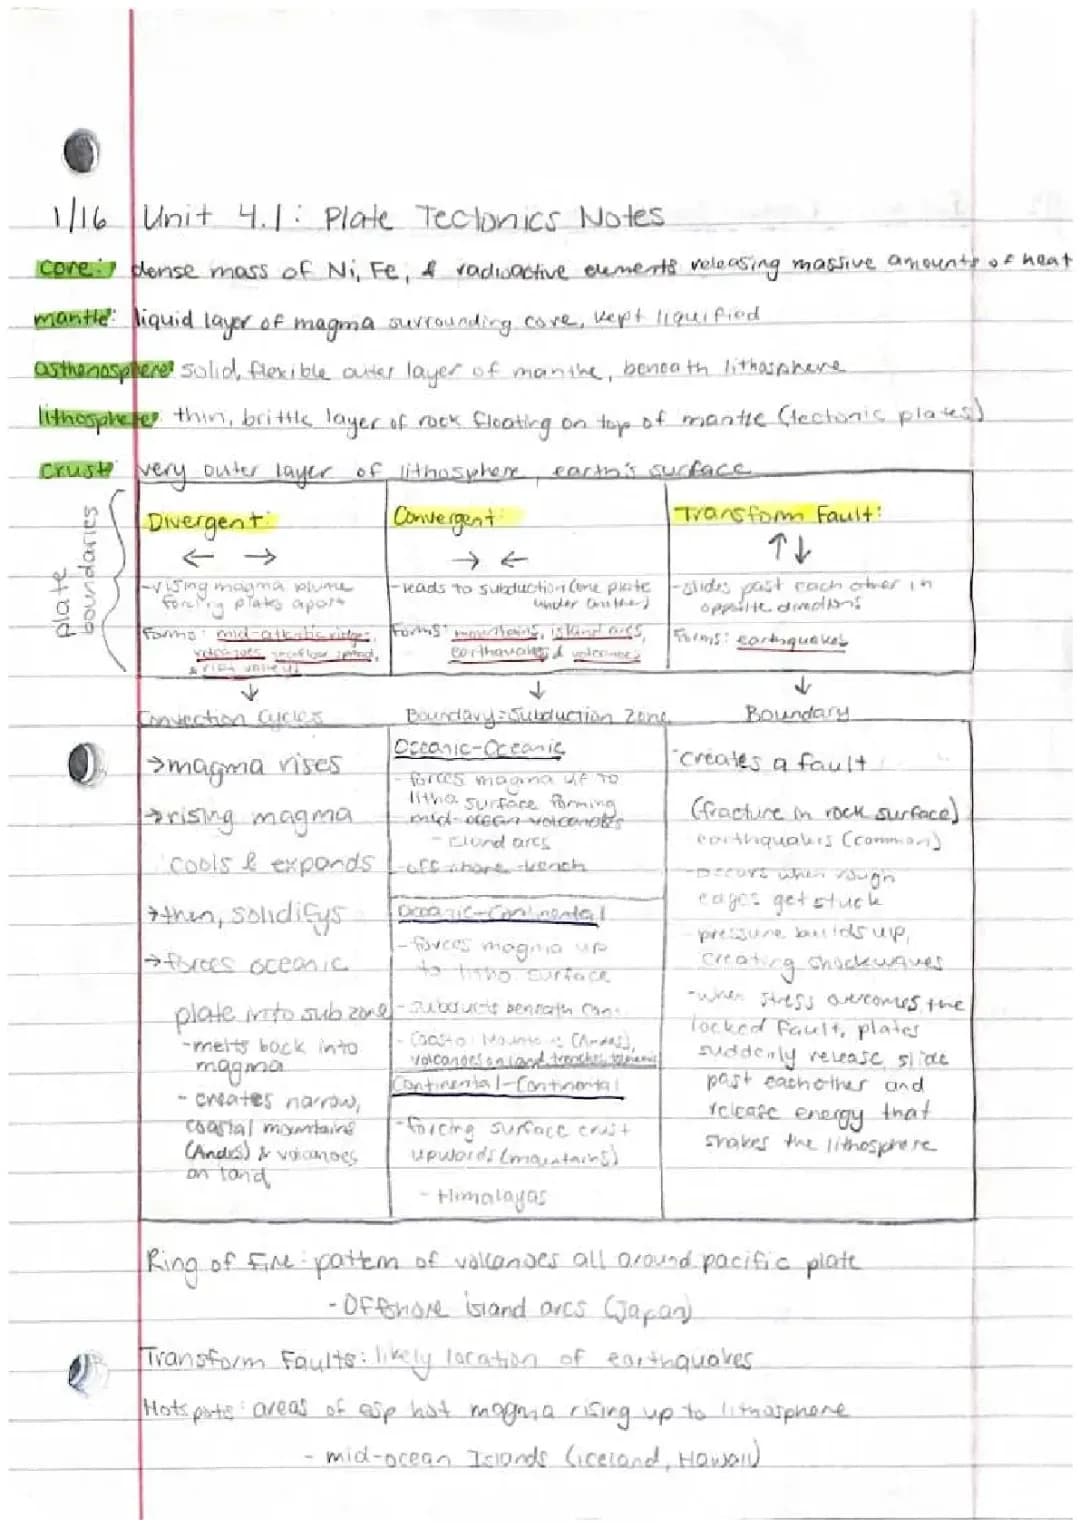 1/16 Unit 4.1: Plate Tectonics Notes
core: dense mass of Ni, Fe, & radioactive elements releasing massive amounts of heat
mantle: liquid layer of magma surrounding core, kept liquified
asthenosphere: solid, flexible outer layer of mantle, beneath lithosphere
lithosphere: thin, brittle layer of rock floating on top of mantle (tectonic plates)
crust: very outer layer of lithosphere, earth's surface
plate
boundaries
Divergent:
← →
-rising magma plume
forcing plates apart
Forms: mid-atlantic ridges,
volcanoes, seafloor spread,
& rift valleys
Convergent:
→ ←
-leads to subduction (one plate
under another)
Forms: mountains, island arcs,
earthquakes & volcanoes
Transform Fault:
↑↓
-slides past each other in
opposite directions
Forms: earthquakes
↓
Convection Cycles
↓
Boundary=Subduction Zone
↓
Boundary
→magma rises
→rising magma
cools & expands
→then, solidifys
→forces oceanic
plate into sub zone
-melts back into
magma
- creates narrow,
coastal mountains
(Andes) & volcanoes
on land
Oceanic-Oceanic
- forces magma up to
litho surface forming
mid-ocean volcanoes
- island arcs
-off shore trench
Oceanic-Continental
-forces magma up
to litho surface
-subducts beneath
- Coastal Mountains (Andes),
volcanoes on land, trenches,
Continental-Continental
-forcing surface crust
upwards (mountains)
- Himalayas
-creates a fault
(fracture in rock surface)
earthquakes (common)
-occurs when rough
edges get stuck
- pressure builds up,
creating shockwaves
-when stress overcomes the
locked fault, plates
suddenly release, slide
past eachother and
release energy that
shakes the lithosphere
Ring of Fire: pattern of volcanoes all around pacific plate
- Offshore island arcs (Japan)
Transform Faults: likely location of earthquakes
Hotspots: areas of esp hot magma rising up to lithosphere
- mid-ocean Islands (iceland, Hawaii)